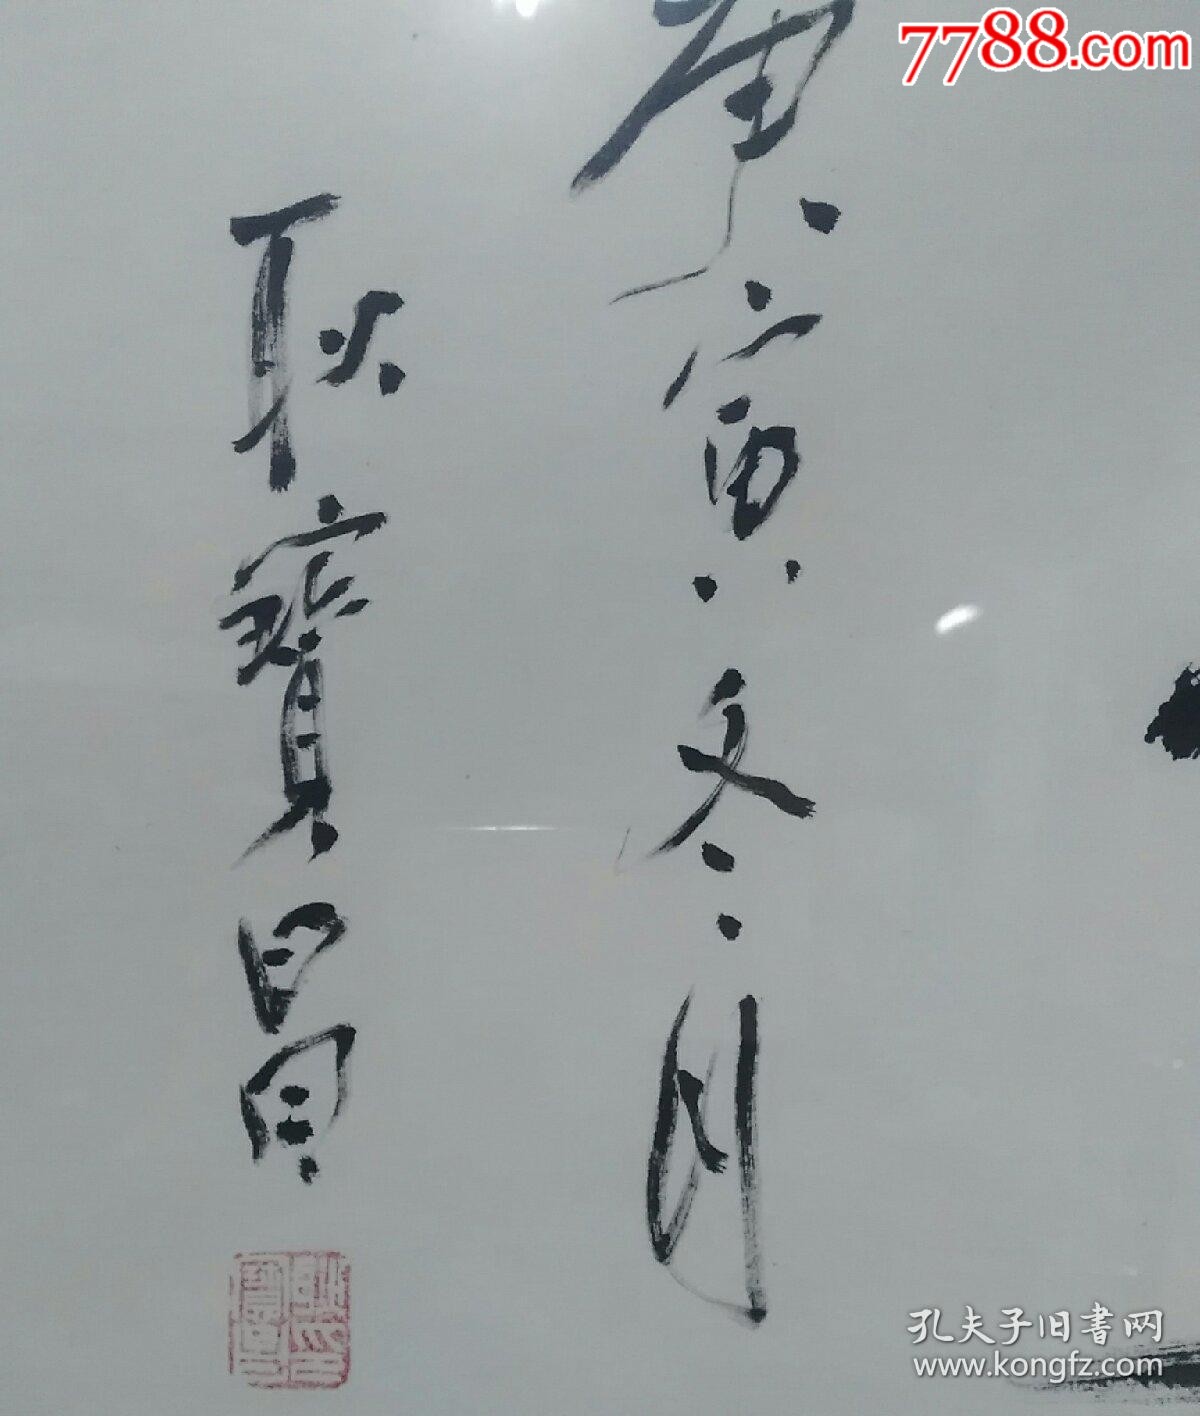 7788.com
庚寅冬月
耿寶昌
孔夫子旧書网
www.kongfz.com